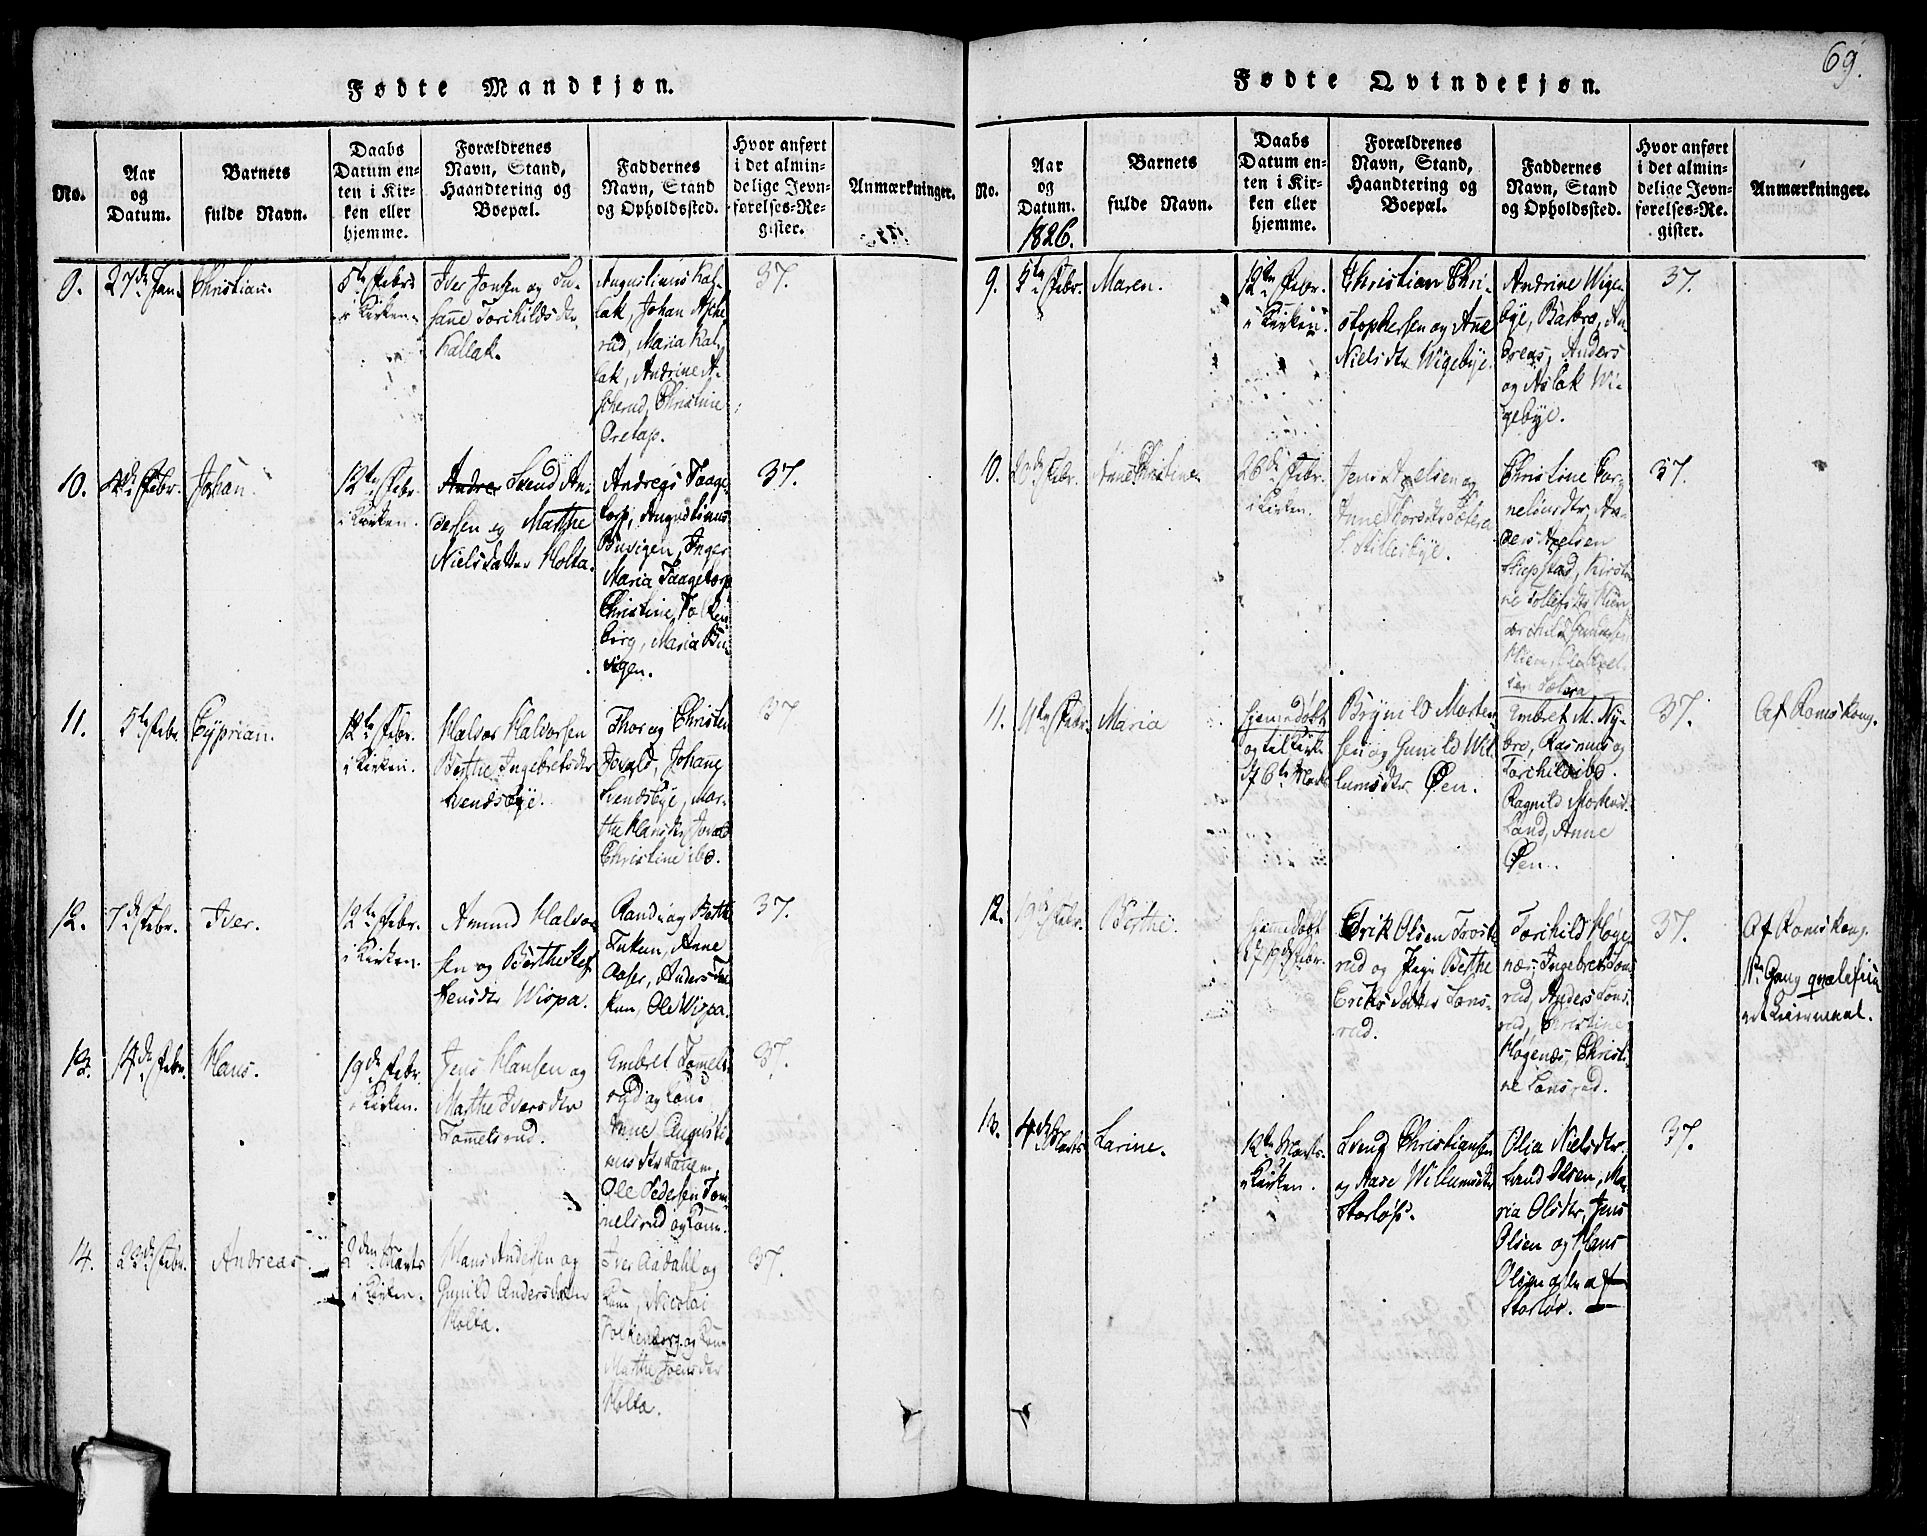 69.
Fødte Mandkjøn.
No.
Aar
og
Datum.
Barnets
fulde Navn.
Daabs
Datum en-
ten i Kir-
ken eller
hjemme.
Forældrenes
Navn, Stand,
Haandtering og
Boepæl.
Faddernes
Navn, Stand
og Opholdssted.
Hvor anført
i det almin-
delige Jevn-
førelses-Re-
gister.
Anmærkninger.
9.
27de Jan.
Christian.
5te Febr.
i Kirken.
Iver Jonsen og Su-
sanne Torchildsdtr
Kallak.
Augustinus Kal-
lak, Johan Asche
rud, Maria Kal-
lak, Andrine A-
scherud, Christine
37.
10.
Febr.
Johan.
12te Febr.
i Kirken.
Svend An-
dersen og Marthe
Nielsdatter Holta.
Andreas Taage-
torp, Augustinus
Buvigen, Inger
Maria Taagetorp
Christine Folken
berg, Maria Bu-
vigen.
37.
11.
5te Febr.
Cyprian.
12te Febr.
i Kirken.
Halvor Halvorsen
Berthe Ingebretsdtr
Svendsbye.
Thor og Christen
Jovald, Johane
Svendsbye, Mar-
the Hansdtr Jovald
Christine ibd.
37
12.
7de Febr.
Iver.
12te Febr.
i Kirken.
Amund Halvor
sen og Berthe Stef
fensdtr Wispa.
Randi og Berthe
Tukun, Anne
Aaser, Anders Tu
kun, Ole Wispa.
37.
13.
14de Febr.
Hans.
19de Febr.
i Kirken.
Jens Hansen og
Marthe Iversdtr
Tomelsrud.
Embret Tomels-
rud og Kone
Anne Augusti-
nusdtr
Ole Pedersen Tom-
melsrud og Kone.
37.
14.
Febr.
Andreas.
2den Marts
i Kirken.
Hans Andersen og
Gunild Andersdatter
Holta.
Iver Aadahl og
Kone, Nicolai
Folkenborg og Kone
Marthe Joensdtr
Holta.
37.
Fødte Qvindekjøn.
No.
Aar
og
Datum.
1826.
Barnets
fulde Navn.
Daabs
Datum en-
ten i Kir-
ken eller
hjemme.
Forældrenes
Navn, Stand,
Haandtering og
Boepæl.
Faddernes
Navn, Stand
og Opholdssted.
Hvor anført
i det almin-
delige Jevn-
førelses-Re-
gister.
Anmærkninger.
9.
5te Febr.
Maren.
12te Febr.
i Kirken.
Christian Chri-
stophersen og Ane
Nielsdtr Wigebye.
Andrine Wige-
bye, Barbro, An-
dreas, Anders
og Aslak Wi-
gebye.
37.
10.
Febr.
Anne Christine
26de Febr.
i Kirken.
Jens Axelsen og
Anne
Christine Cor-
neliusdtr, An-
ders Axelsen
37.
11.
11te Febr.
Maria
hjemmedøbt
og til Kirke
d. 6te Marts
Brynild Morten
sen og Gunild Wil
lumsdtr Øen.
Embret M. Ny-
bro, Rasmus og
Torchild ibd.
Ragnild Mortensd.
Sand, Anne
Øen.
37.
Af Romskoug.
12.
19de Febr.
Berthe.
hjemmedøbt
d. 19de Febr.
Erik Olsen Trost-
rud og Pige Berthe
Eriksdatter Sons-
rud.
Torchild Høge
næs, Ingebret Sons
rud, Anders Sons-
rud, Christine
Høgenæs, Christi-
ne Sonsrud.
37.
Af Romskoug.
1te Gang qvalefice
ret Leiermaal.
13.
4de Marts
Larine.
12te Marts
i Kirken.
Svend Christiansen
og Aase Willumsdtr
Storløs.
Olia Nielsdtr.
Svend Olsen, Ma-
ria Olsdtr, Jens
Olsen og Hans
Olsen alle af
Storløs.
37.